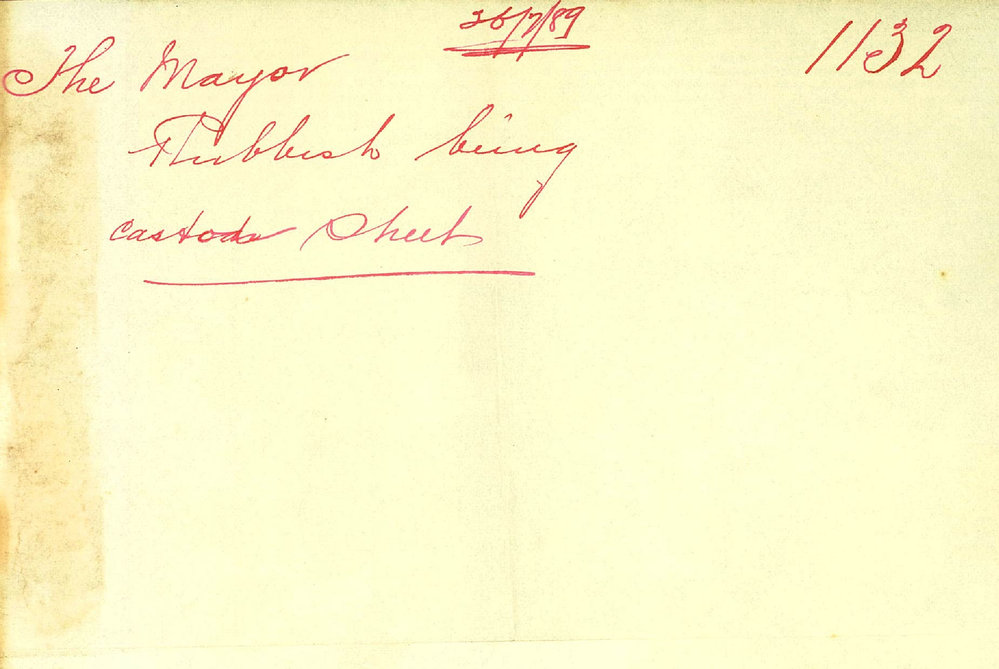 26/7/89
1132
The Mayor
Rubbish being
cast on Street